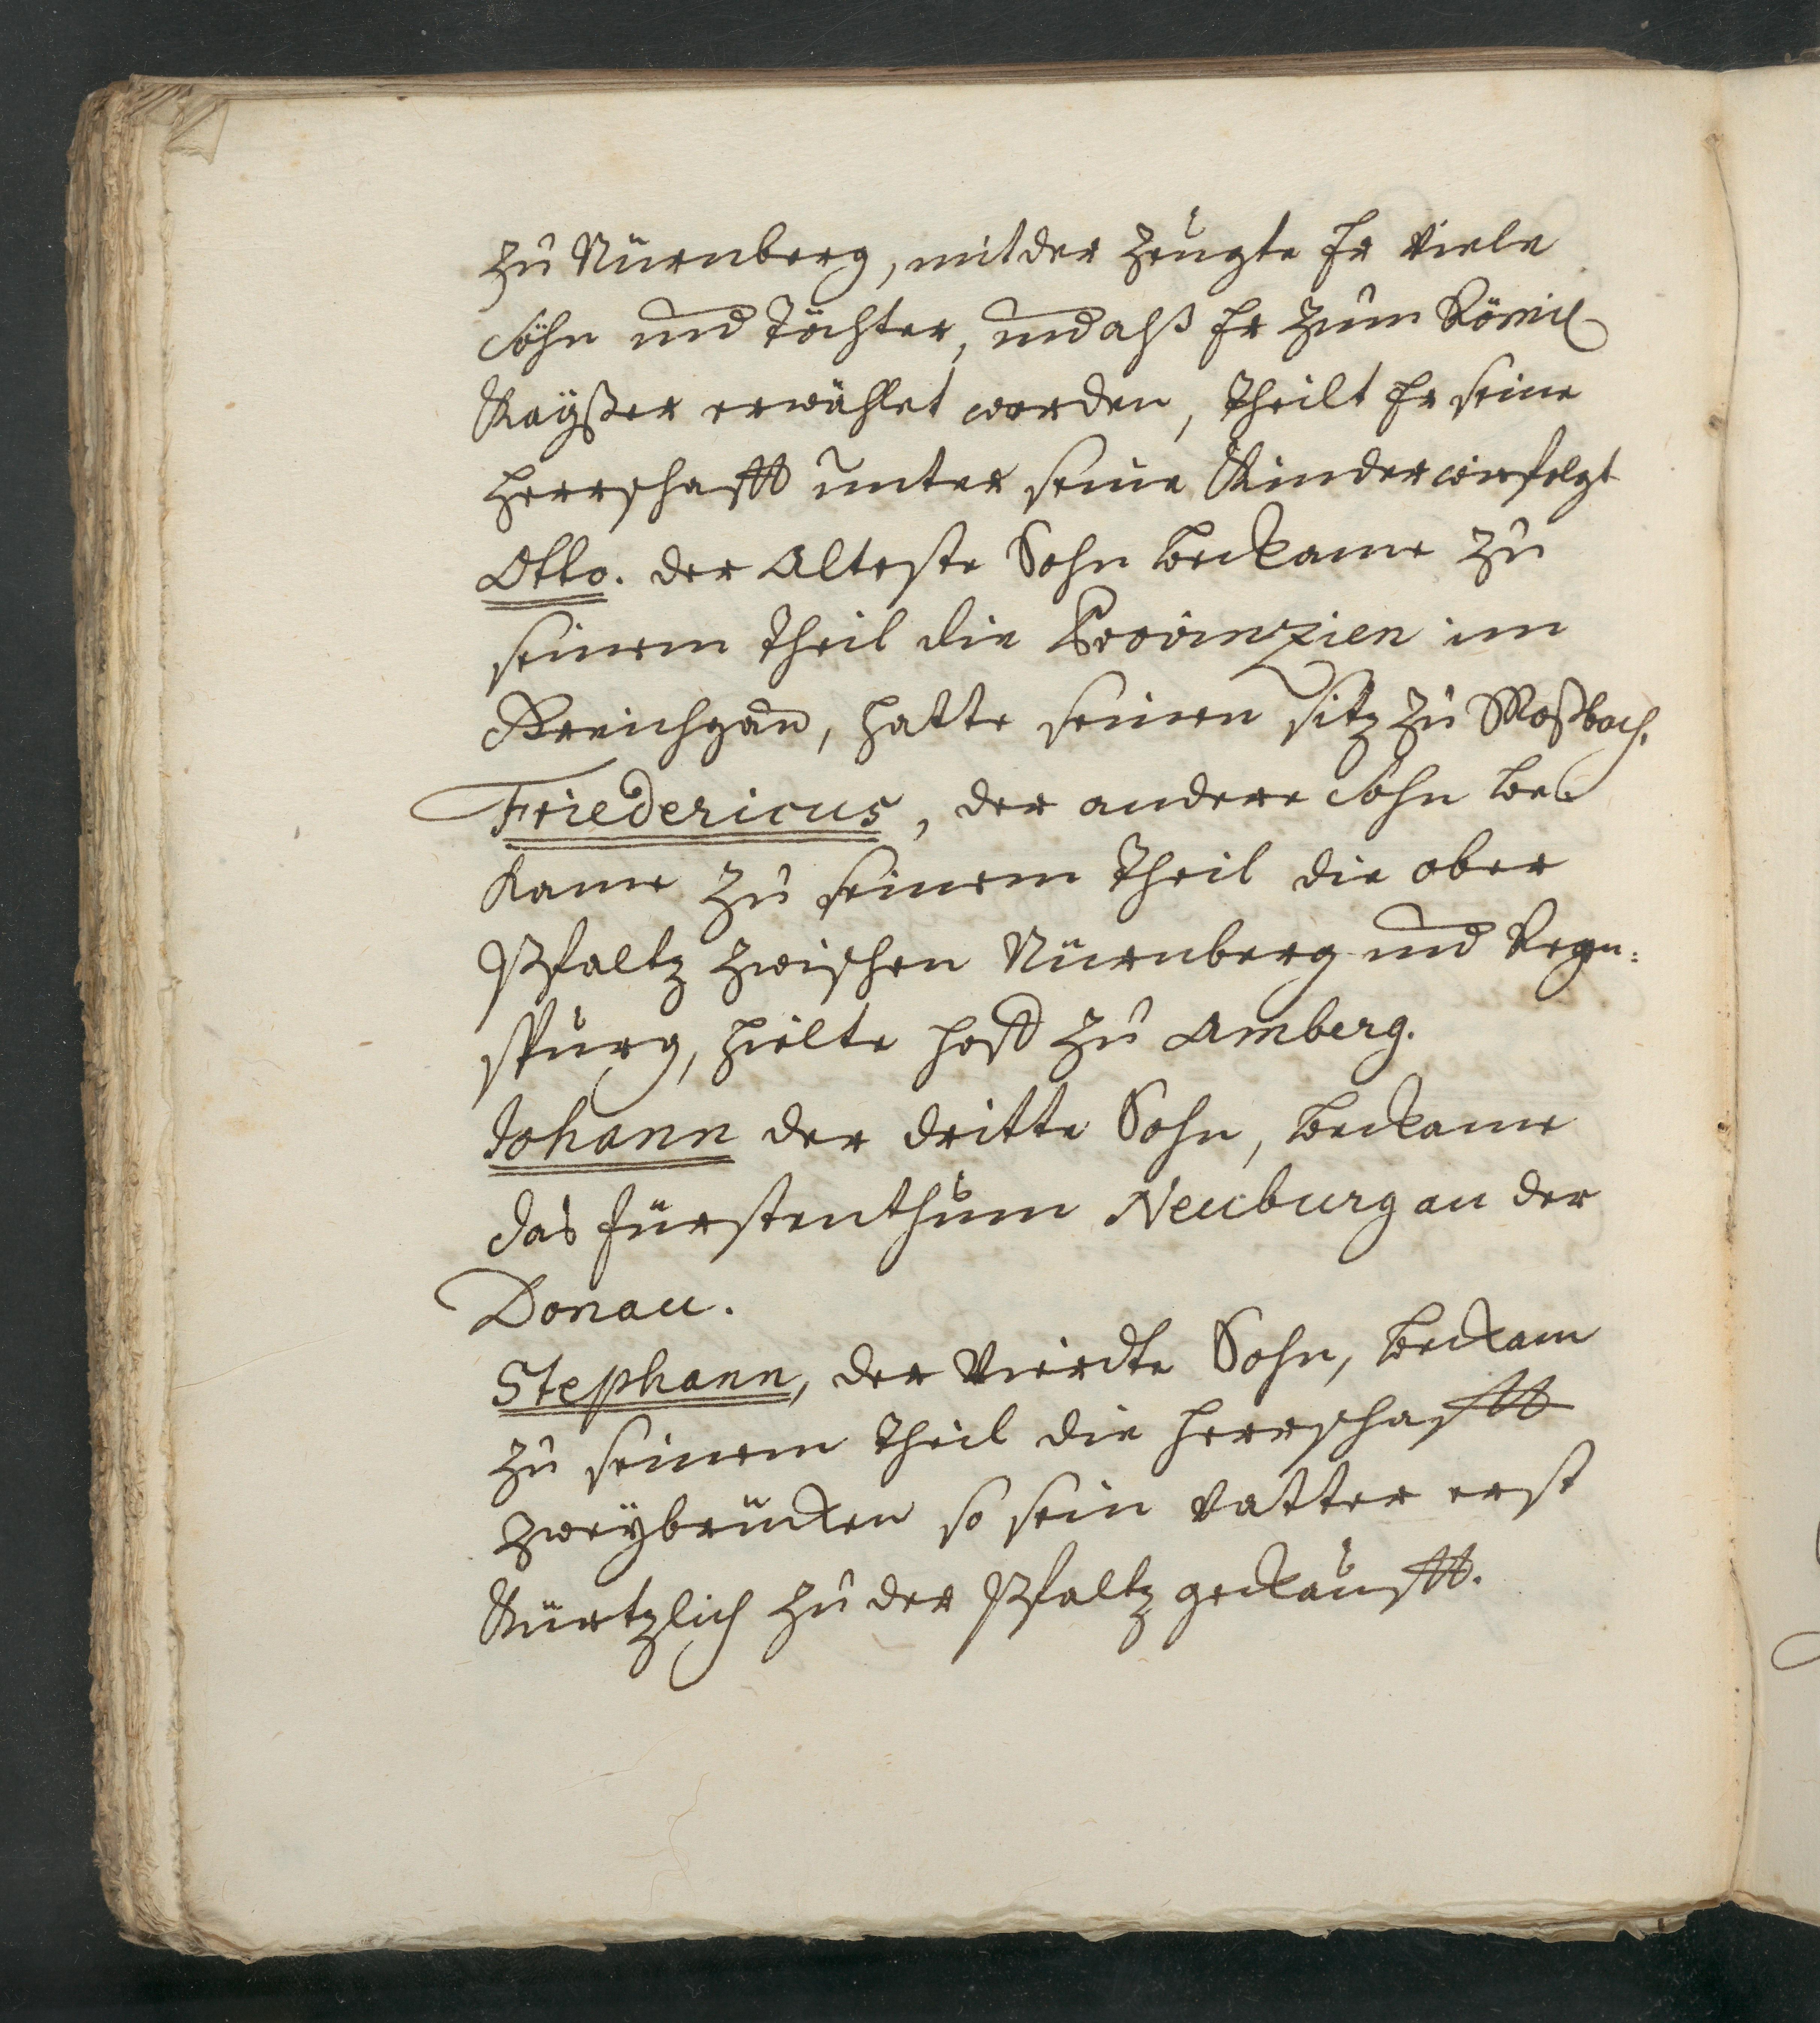 zu Nürnberg, mit der zeugte Er viele
Söhn und Töchter, und alß Er zum Römis.
Kaÿßer erwählet worden, theilt Er seine
Herrschafft unter seine Kinder wie folgt
Otto. der Älteste Sohn beckame zu
seinem Theil die Provinzien im
Kreichgau, hatte seinen Sitz zu Moßbach.
Friedericus, der andere Sohn be-
kame zu seinem Theil die ober
Pfaltz zwischen Nürnberg und Regen:
spurg, hielte Hoff zu Amberg.
Johann der dritte Sohn, beckame
das Fürstenthum Neuburg an der
Donau.
Stephann, der Vierdte Sohn, beckam
zu seinem Theil die Herrschafft
Zweÿbrücken so sein Vatter erst
Kürtzlich zu der Pfaltz geckaufft.